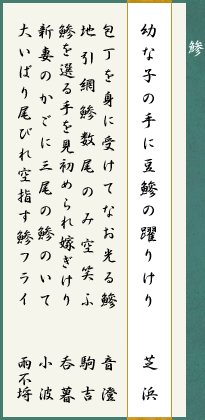 鰺
幼な子の手に豆鰺の躍りけり 芝浜
包丁を身に受けてなお光る鰺 音澄
地引網鰺数尾のみ空笑ふ 駒吉
鰺を選る手を見初められ嫁ぎけり 呑暮
新妻のかごに三尾の鰺のいて 小波
大いばり尾びれ空指す鰺フライ 雨不埒